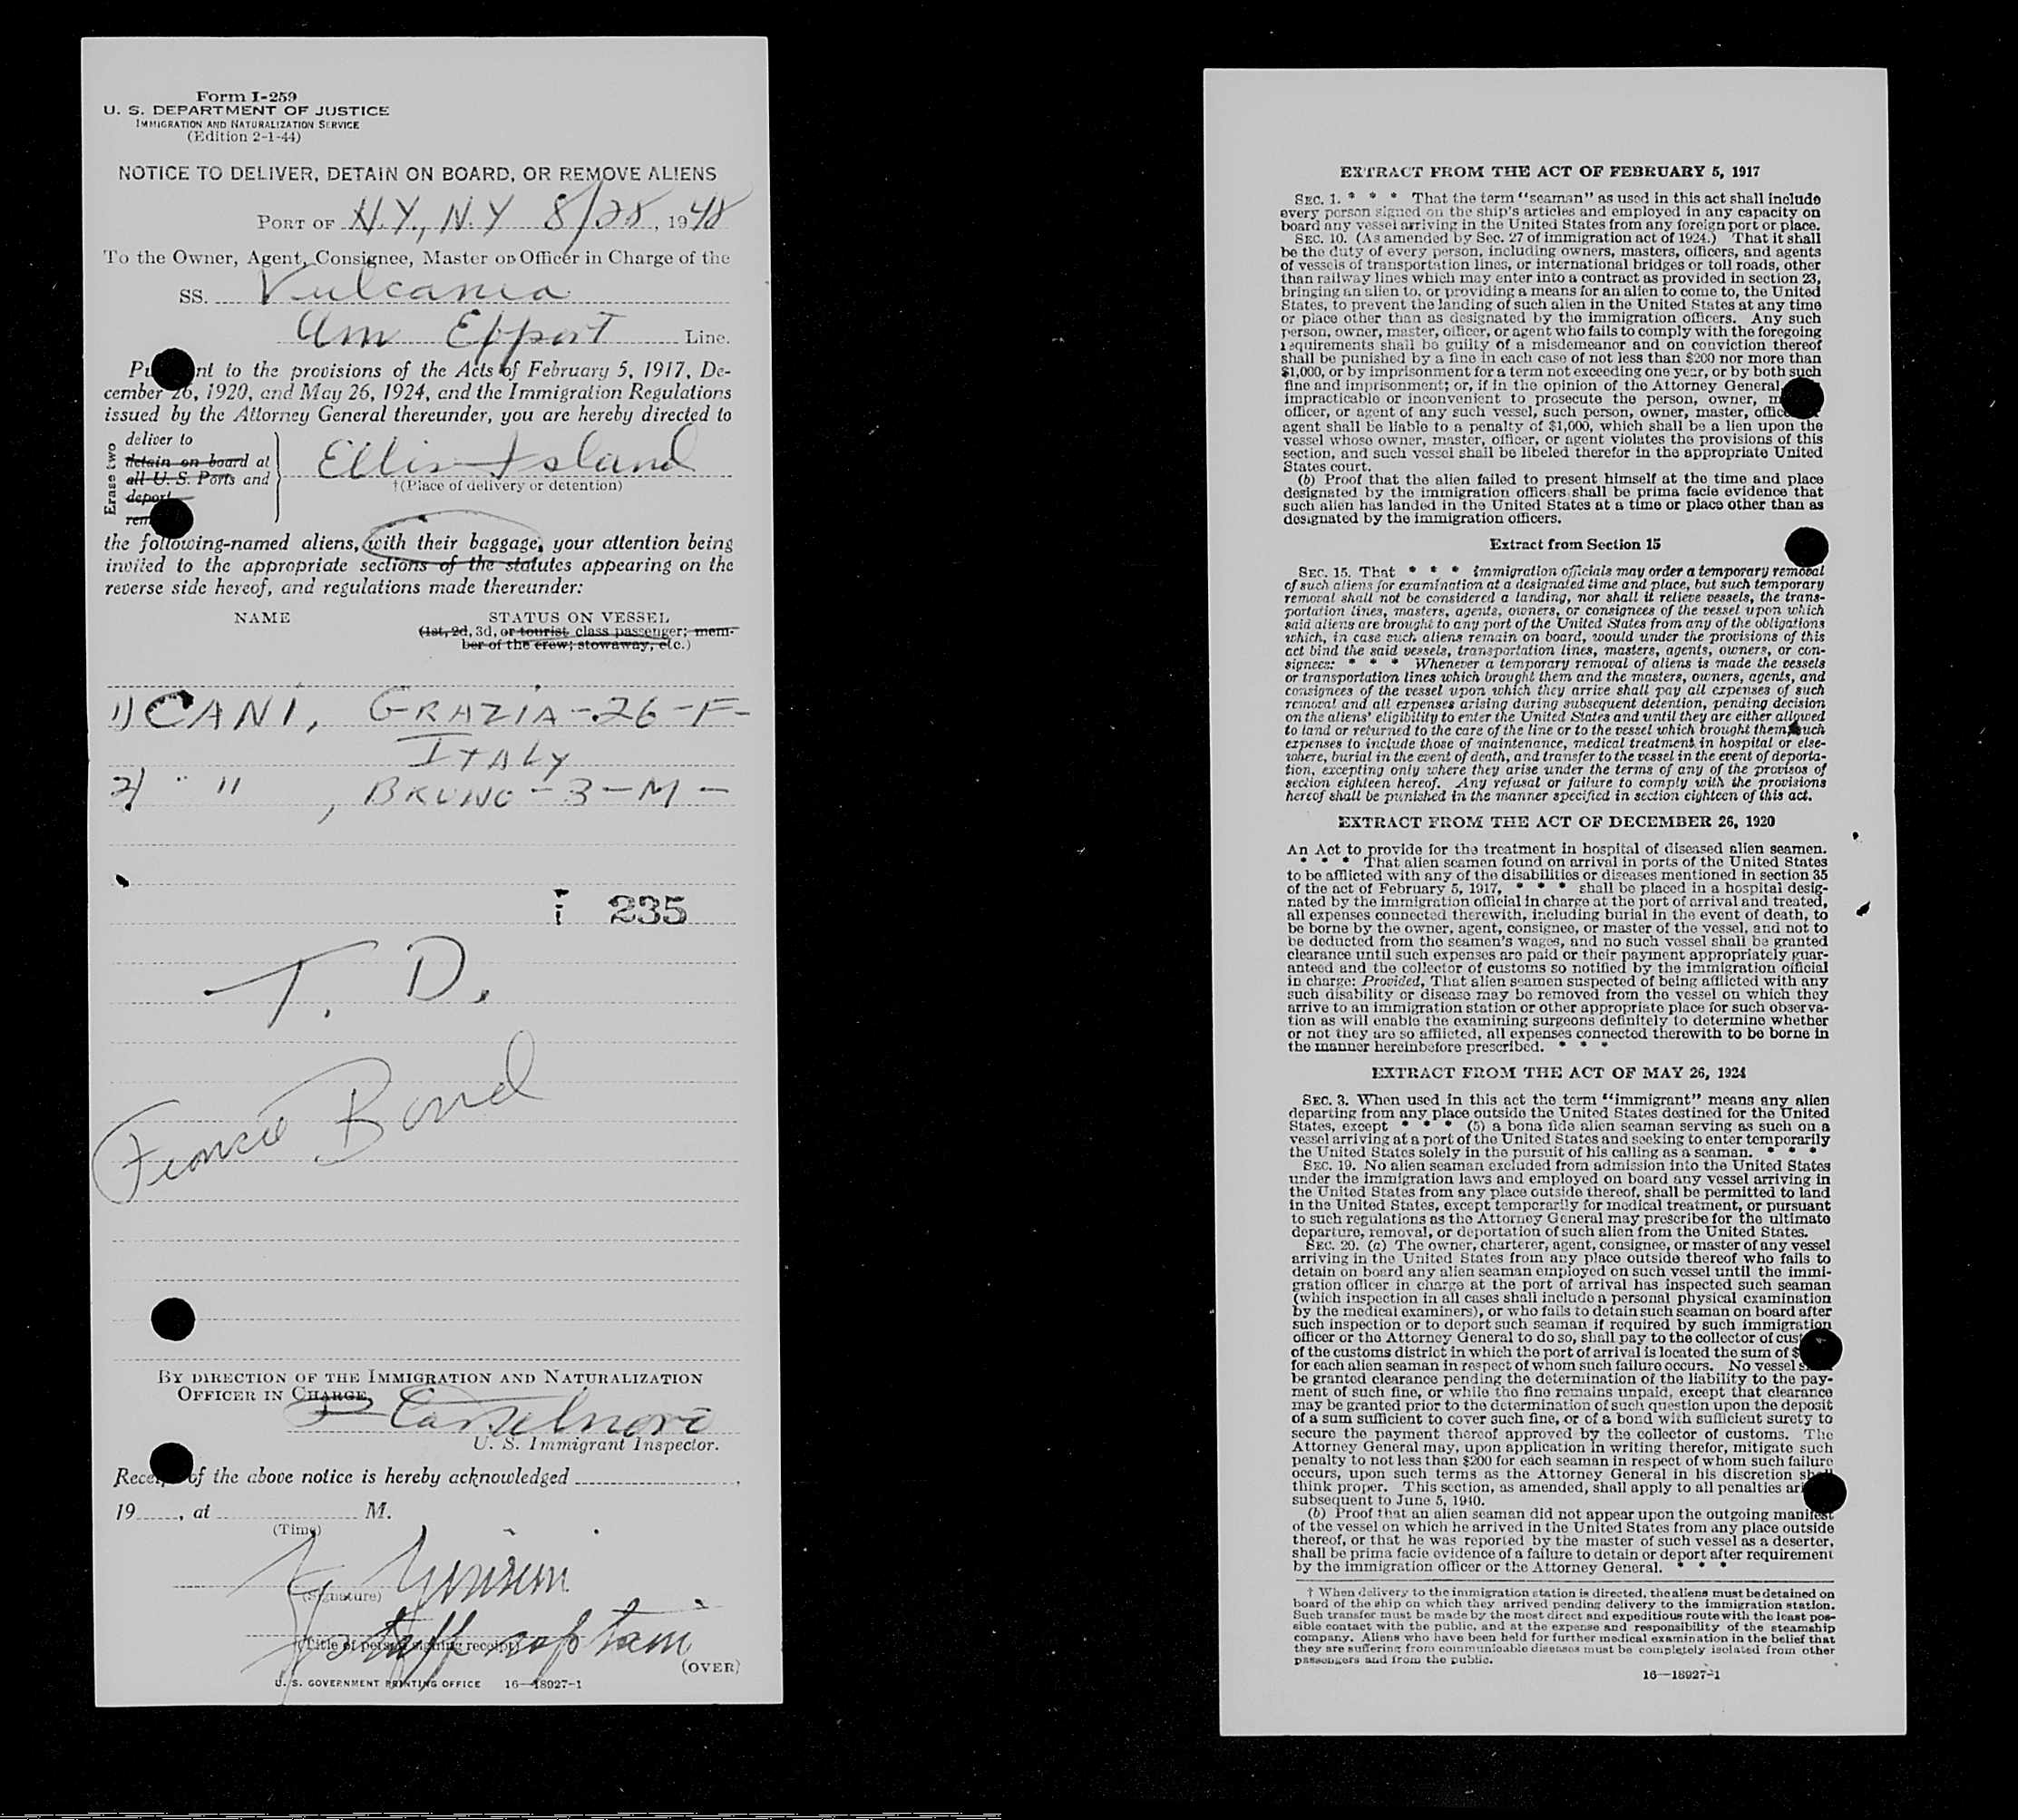 Form I-259
U. S. DEPARTMENT OF JUSTICE
IMMIGRATION AND NATURALIZATION SERVICE
(Edition 2-1-44)
NOTICE TO DELIVER, DETAIN ON BOARD, OR REMOVE ALIENS
PORT OF N.Y., N.Y 8/28, 1948
To the Owner, Agent, Consignee, Master or Officer in Charge of the
SS. Vulcania
Am Export Line.
nt to the provisions of the Acts of February 5, 1917, De-
cember 26, 1920, and May 26, 1924, and the Immigration Regulations
issued by the Attorney General thereunder, you are hereby directed to
Erase two
deliver to
detain on board at
all U. S. Ports and
deport
Ellis Island
†(Place of delivery or detention)
the following-named aliens, with their baggage, your attention being
invited to the appropriate sections of the statutes appearing on the
reverse side hereof, and regulations made thereunder:
NAME STATUS ON VESSEL
(1st, 2d, 3d, or tourist class passenger; mem-
ber of the crew; stowaway, etc.)
1) CANI, GRAZIA - 26 - F -
ITALY
2) " " , BRUNO - 3 - M -
235
T. D.
Bond
BY DIRECTION OF THE IMMIGRATION AND NATURALIZATION
OFFICER IN CHARGE
U. S. Immigrant Inspector.
of the above notice is hereby acknowledged
19......, at M.
(Time)
(Signature)
staff captain
(Title of person signing receipt)
(OVER)
U. S. GOVERNMENT PRINTING OFFICE 16—18927-1
EXTRACT FROM THE ACT OF FEBRUARY 5, 1917
SEC. 1. * * * That the term "seaman" as used in this act shall include
every person signed on the ship's articles and employed in any capacity on
board any vessel arriving in the United States from any foreign port or place.
SEC. 10. (As amended by Sec. 27 of immigration act of 1924.) That it shall
be the duty of every person, including owners, masters, officers, and agents
of vessels of transportation lines, or international bridges or toll roads, other
than railway lines which may enter into a contract as provided in section 23,
bringing an alien to, or providing a means for an alien to come to, the United
States, to prevent the landing of such alien in the United States at any time
or place other than as designated by the immigration officers. Any such
person, owner, master, officer, or agent who fails to comply with the foregoing
requirements shall be guilty of a misdemeanor and on conviction thereof
shall be punished by a fine in each case of not less than $200 nor more than
$1,000, or by imprisonment for a term not exceeding one year, or by both such
fine and imprisonment; or, if in the opinion of the Attorney General,
impracticable or inconvenient to prosecute the person, owner, m
officer, or agent of any such vessel, such person, owner, master, office
agent shall be liable to a penalty of $1,000, which shall be a lien upon the
vessel whose owner, master, officer, or agent violates the provisions of this
section, and such vessel shall be libeled therefor in the appropriate United
States court.
(b) Proof that the alien failed to present himself at the time and place
designated by the immigration officers shall be prima facie evidence that
such alien has landed in the United States at a time or place other than as
designated by the immigration officers.
Extract from Section 15
SEC. 15. That * * * immigration officials may order a temporary removal
of such aliens for examination at a designated time and place, but such temporary
removal shall not be considered a landing, nor shall it relieve vessels, the trans-
portation lines, masters, agents, owners, or consignees of the vessel upon which
said aliens are brought to any port of the United States from any of the obligations
which, in case such aliens remain on board, would under the provisions of this
act bind the said vessels, transportation lines, masters, agents, owners, or con-
signees: * * * Whenever a temporary removal of aliens is made the vessels
or transportation lines which brought them and the masters, owners, agents, and
consignees of the vessel upon which they arrive shall pay all expenses of such
removal and all expenses arising during subsequent detention, pending decision
on the aliens' eligibility to enter the United States and until they are either allowed
to land or returned to the care of the line or to the vessel which brought them, such
expenses to include those of maintenance, medical treatment in hospital or else-
where, burial in the event of death, and transfer to the vessel in the event of deporta-
tion, excepting only where they arise under the terms of any of the provisos of
section eighteen hereof. Any refusal or failure to comply with the provisions
hereof shall be punished in the manner specified in section eighteen of this act.
EXTRACT FROM THE ACT OF DECEMBER 26, 1920
An Act to provide for the treatment in hospital of diseased alien seamen.
* * * That alien seamen found on arrival in ports of the United States
to be afflicted with any of the disabilities or diseases mentioned in section 35
of the act of February 5, 1917, * * * shall be placed in a hospital desig-
nated by the immigration official in charge at the port of arrival and treated,
all expenses connected therewith, including burial in the event of death, to
be borne by the owner, agent, consignee, or master of the vessel, and not to
be deducted from the seamen's wages, and no such vessel shall be granted
clearance until such expenses are paid or their payment appropriately guar-
anteed and the collector of customs so notified by the immigration official
in charge: Provided, That alien seamen suspected of being afflicted with any
such disability or disease may be removed from the vessel on which they
arrive to an immigration station or other appropriate place for such observa-
tion as will enable the examining surgeons definitely to determine whether
or not they are so afflicted, all expenses connected therewith to be borne in
the manner hereinbefore prescribed. * * *
EXTRACT FROM THE ACT OF MAY 26, 1924
SEC. 3. When used in this act the term "immigrant" means any alien
departing from any place outside the United States destined for the United
States, except * * * (5) a bona fide alien seaman serving as such on a
vessel arriving at a port of the United States and seeking to enter temporarily
the United States solely in the pursuit of his calling as a seaman. * * *
SEC. 19. No alien seaman excluded from admission into the United States
under the immigration laws and employed on board any vessel arriving in
the United States from any place outside thereof, shall be permitted to land
in the United States, except temporarily for medical treatment, or pursuant
to such regulations as the Attorney General may prescribe for the ultimate
departure, removal, or deportation of such alien from the United States.
SEC. 20. (a) The owner, charterer, agent, consignee, or master of any vessel
arriving in the United States from any place outside thereof who fails to
detain on board any alien seaman employed on such vessel until the immi-
gration officer in charge at the port of arrival has inspected such seaman
(which inspection in all cases shall include a personal physical examination
by the medical examiners), or who fails to detain such seaman on board after
such inspection or to deport such seaman if required by such immigration
officer or the Attorney General to do so, shall pay to the collector of cus
of the customs district in which the port of arrival is located the sum of $
for each alien seaman in respect of whom such failure occurs. No vessel s
be granted clearance pending the determination of the liability to the pay-
ment of such fine, or while the fine remains unpaid, except that clearance
may be granted prior to the determination of such question upon the deposit
of a sum sufficient to cover such fine, or of a bond with sufficient surety to
secure the payment thereof approved by the collector of customs. The
Attorney General may, upon application in writing therefor, mitigate such
penalty to not less than $200 for each seaman in respect of whom such failure
occurs, upon such terms as the Attorney General in his discretion shall
think proper. This section, as amended, shall apply to all penalties ari
subsequent to June 5, 1940.
(b) Proof that an alien seaman did not appear upon the outgoing manifest
of the vessel on which he arrived in the United States from any place outside
thereof, or that he was reported by the master of such vessel as a deserter,
shall be prima facie evidence of a failure to detain or deport after requirement
by the immigration officer or the Attorney General. * * *
† When delivery to the immigration station is directed, the aliens must be detained on
board of the ship on which they arrived pending delivery to the immigration station.
Such transfer must be made by the most direct and expeditious route with the least pos-
sible contact with the public, and at the expense and responsibility of the steamship
company. Aliens who have been held for further medical examination in the belief that
they are suffering from communicable diseases must be completely isolated from other
passengers and from the public.
16—18927-1